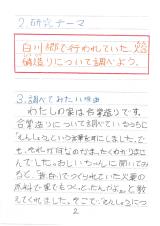 2.研究テーマ
白川郷で行われていた、焔
硝造りについて調べよう。
3.調べてみたい理由
わたしの家は合掌造りです。
合掌造りについて調べているうちに
「えんしょう」という言葉を耳にしました。で
も、それが何なのかまったくわかりませ
んでした。おじいちゃんに聞いてみ
ると、「昔白川でつくられていた火薬の
原料で家でもつくっとったんだよ。」と教え
てくれました。そこで、「えんしょう」につ
2